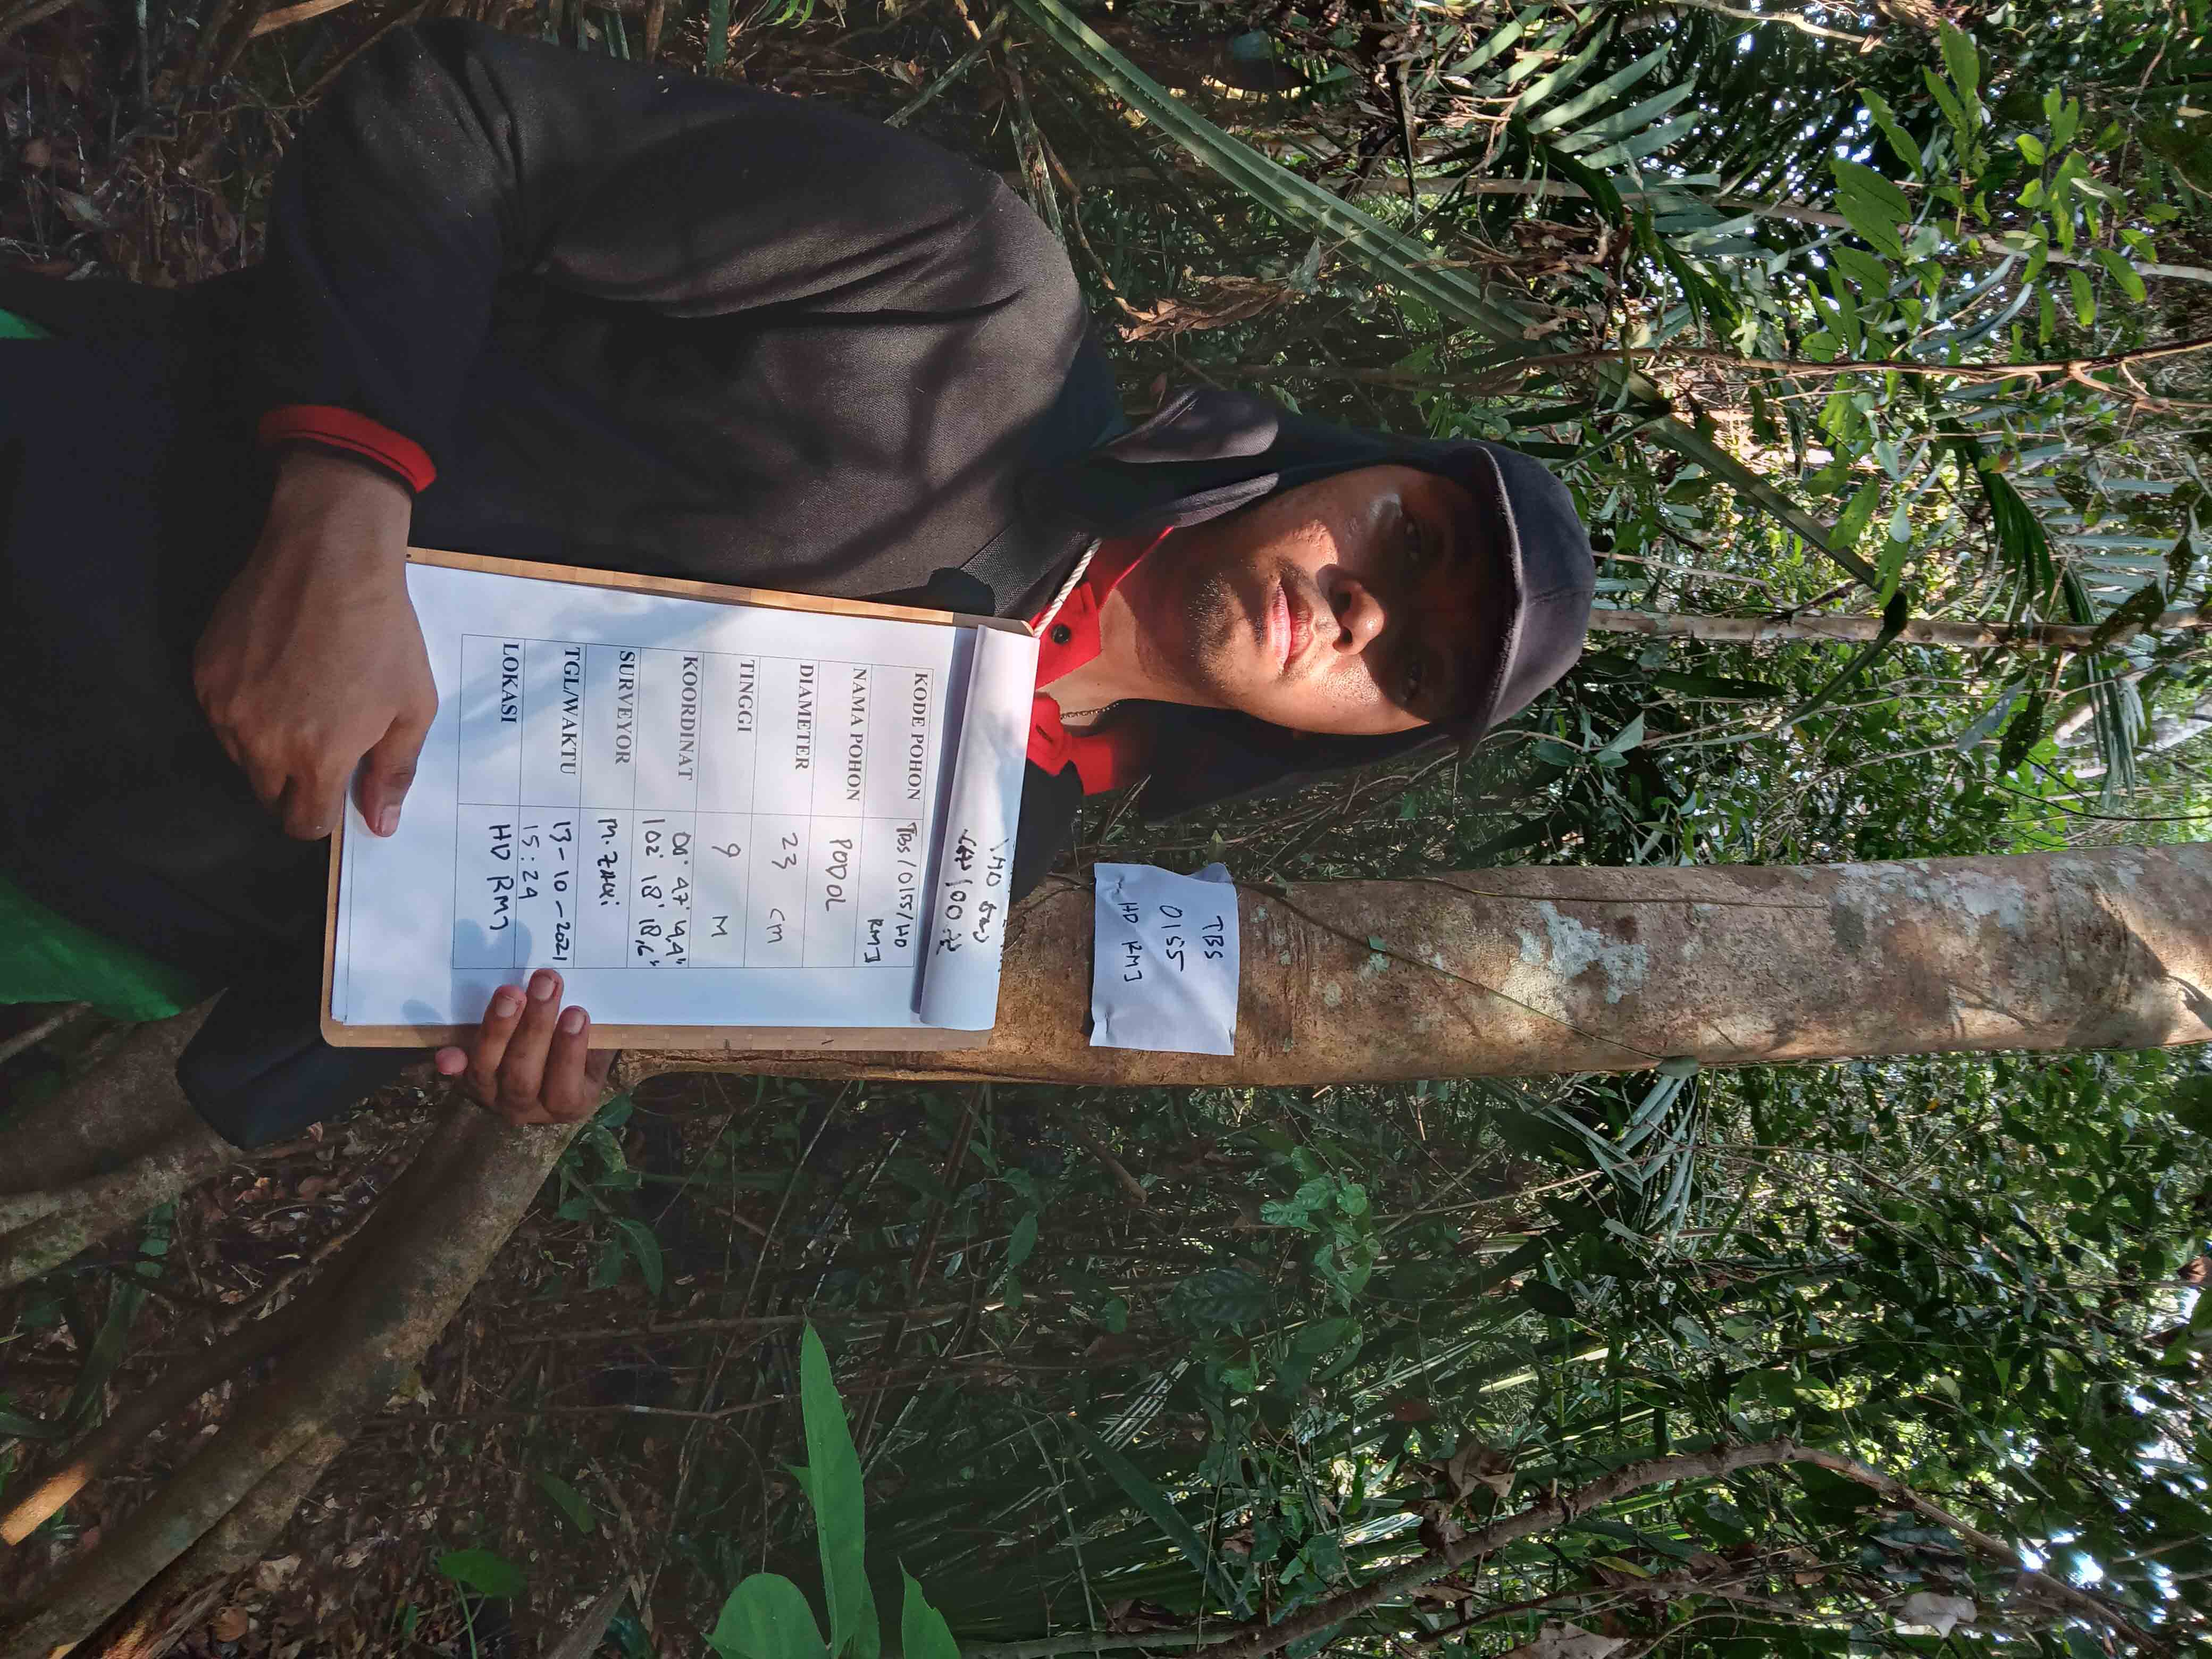 TBS
0155
HD RMJ
KODE POHON TBS/0155/HD
RMJ
NAMA POHON PODOL
DIAMETER 23 CM
TINGGI 9 M
KOORDINAT 00° 47' 19,9"
102° 18' 18,6"
SURVEYOR M. ZAKI
TGL/WAKTU 13-10-2021
15:24
LOKASI HD RMJ